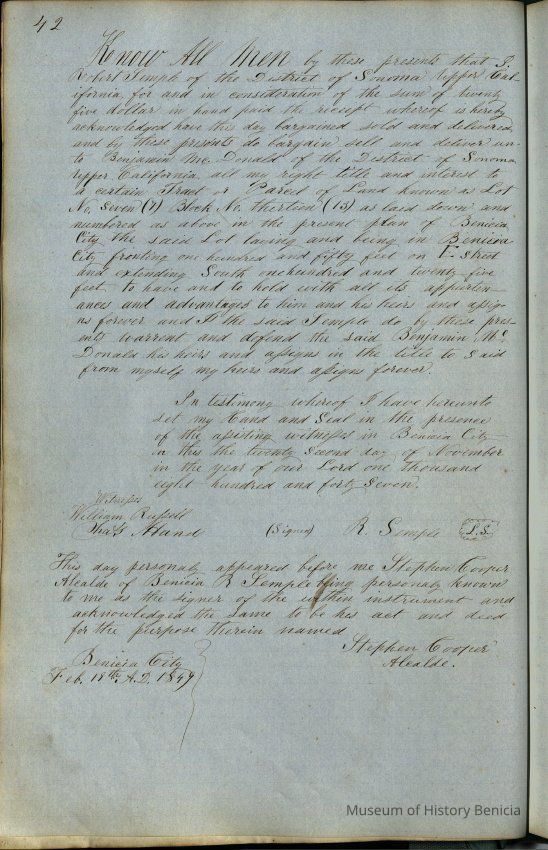 42
Know All Men by these presents that I.
Robert Semple of the District of Sonoma Upper Cal-
ifornia, for and in consideration of the sum of twenty
five dollar in hand paid the receipt whereof is hereby
acknowledged have this day bargained sold and delivered
and by these presents do bargain sell and deliver un-
to Benjamin Mc. Donald of the District of Sonoma
upper California, all my right title and interest to
a certain Tract or Parcel of Land known as Lot
No. Seven (7) Block No. thirteen (13) as laid down and
numbered as above in the present plan of Benicia
City the said Lot laying and being in Benicia
City fronting one hundred and fifty feet on E Street
and extending South one hundred and twenty five
feet, to have and to hold with all its appurten-
ances and advantages to him and his heirs and assig-
ns forever and I the said Semple do by these pres-
ents warrent and defend the said Benjamin Mc
Donald his heirs and assigns in the title to said
from myself my heirs and assigns forever.
In testimony whereof I have hereunto
set my Hand and Seal in the presence
of the assisting witnesses in Benicia City
on this the twenty second day of November
in the year of our Lord one thousand
eight hundred and forty Seven.
Witnesses
William Russell
Chas Hand (Signed) R. Semple L.S.
This day personaly appeared before me Stephen Cooper
Alcalde of Benicia R Semple being personaly known
to me as the signer of the within instrument and
acknowledged the same to be his act and deed
for the purpose therein named
Stephen Cooper
Benicia City Alcalde.
Feb. 18th A.D. 1849
Museum of History Benicia